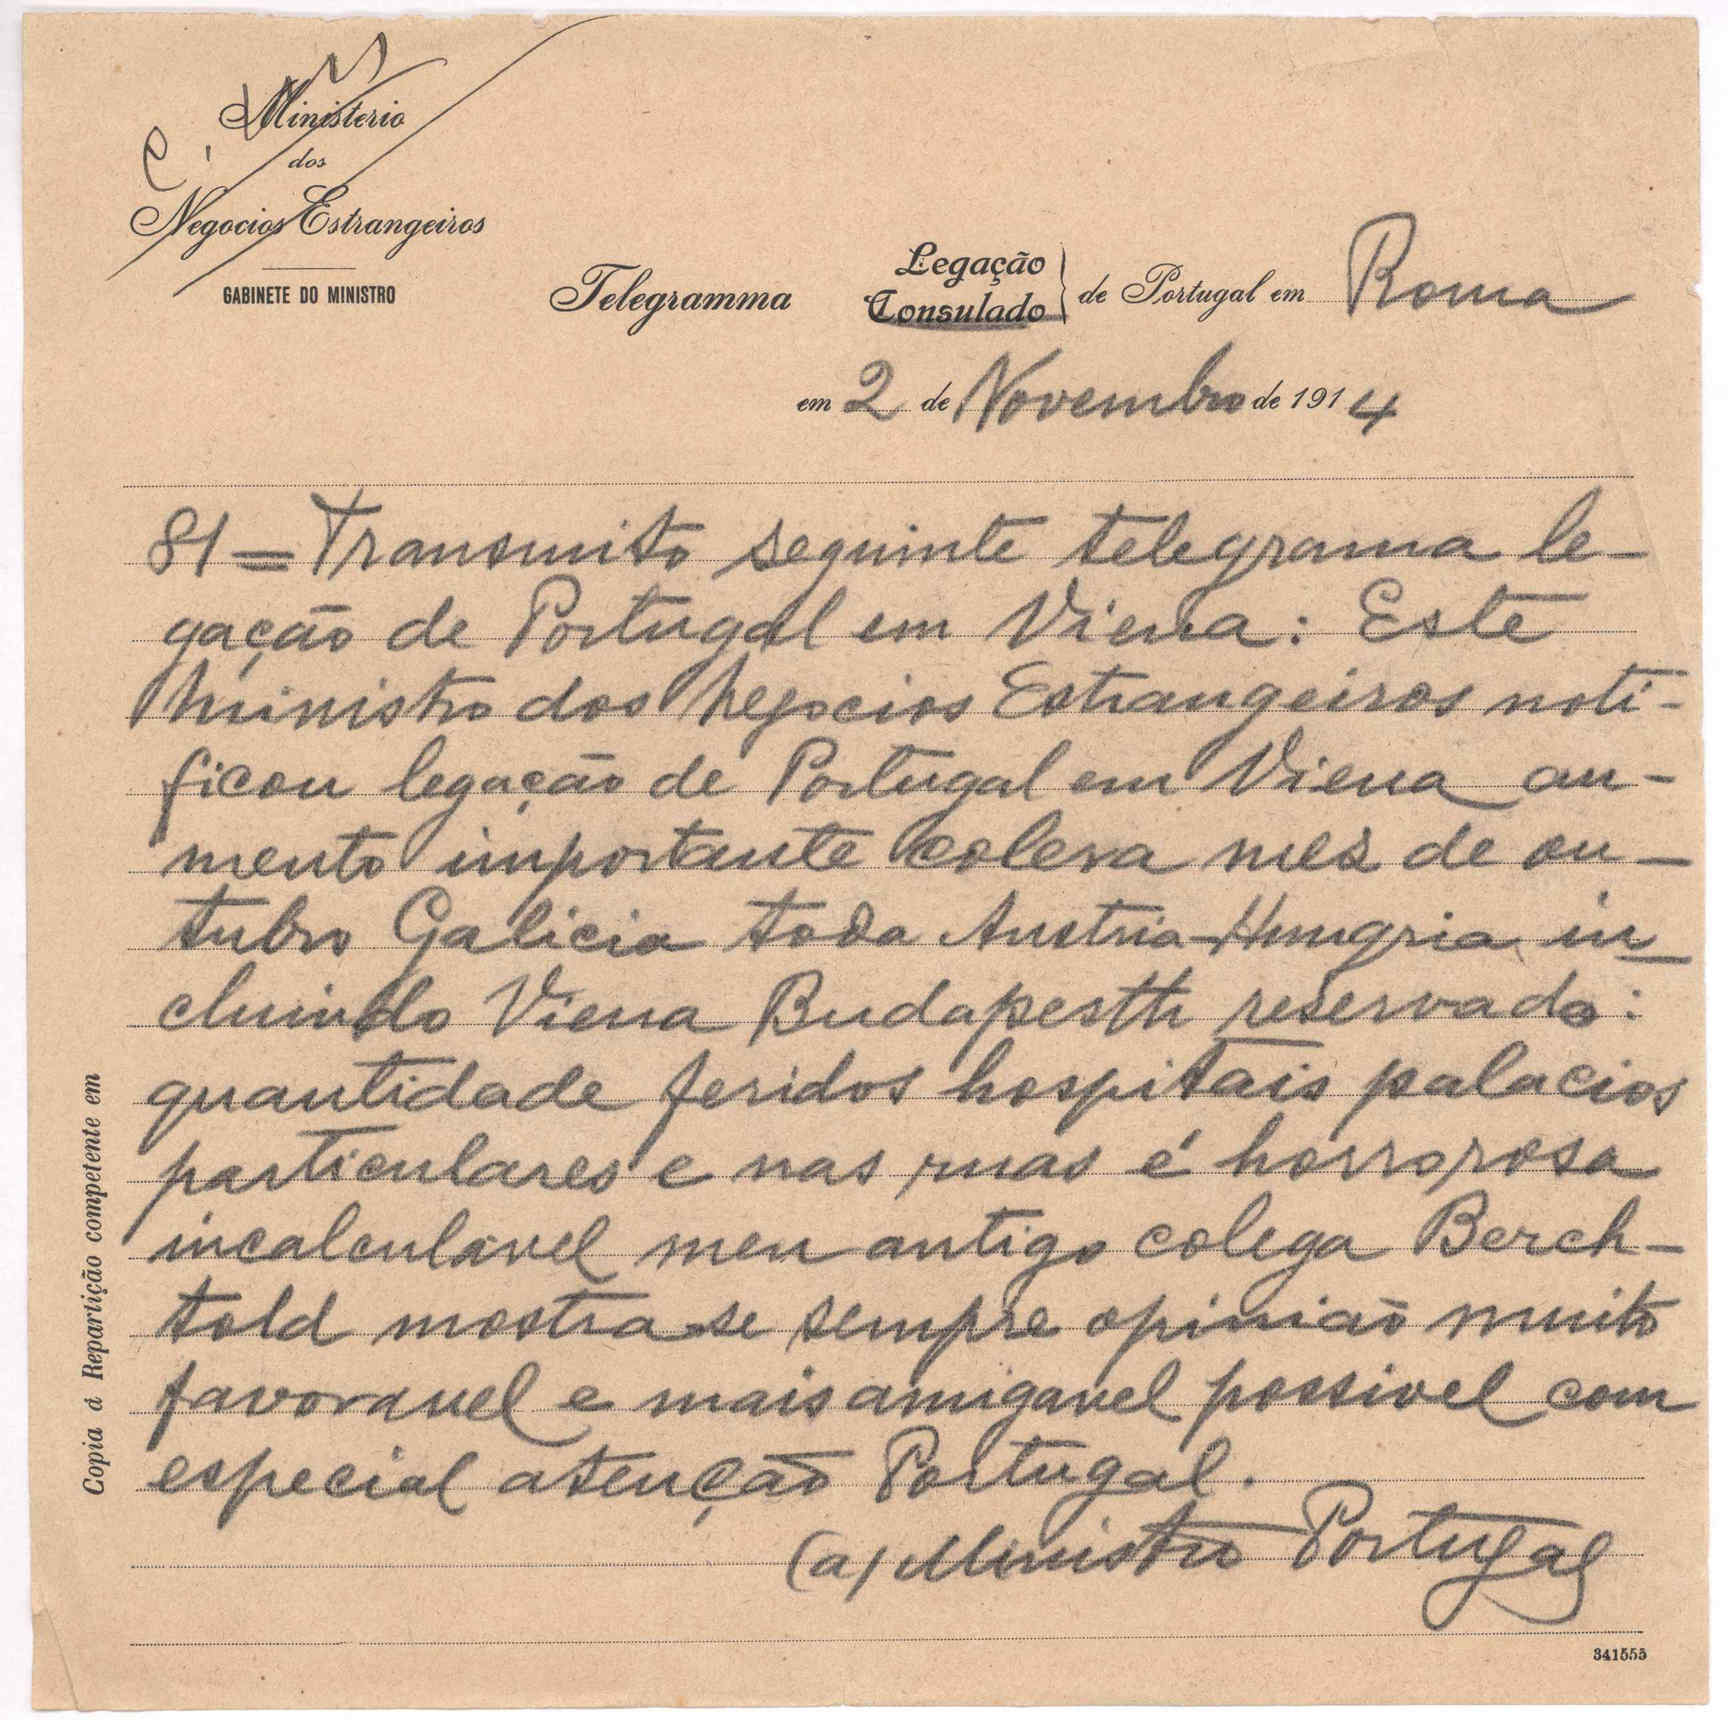 Ministerio
dos
Negocios Estrangeiros
GABINETE DO MINISTRO
Telegramma
Legação
Consulado
de Portugal em Roma
em 2 de Novembro de 1914
81 = Transmito seguinte telegrama le-
gação de Portugal em Viena: Este
ministro dos negocios Estrangeiros noti-
ficou legação de Portugal em Viena au-
mento importante colera mez de ou-
tubro Galicia toda Austria-Hungria in-
cluindo Viena Budapesth reservado:
quantidade feridos hospitais palacios
particulares e nas ruas é horrorosa
incalculavel meu antigo colega Berch-
told mostra-se sempre opinião muito
favoravel e mais amigavel possivel com
especial atenção Portugal.
(a) Ministro Portugal
Copia á Repartição competente em
341555